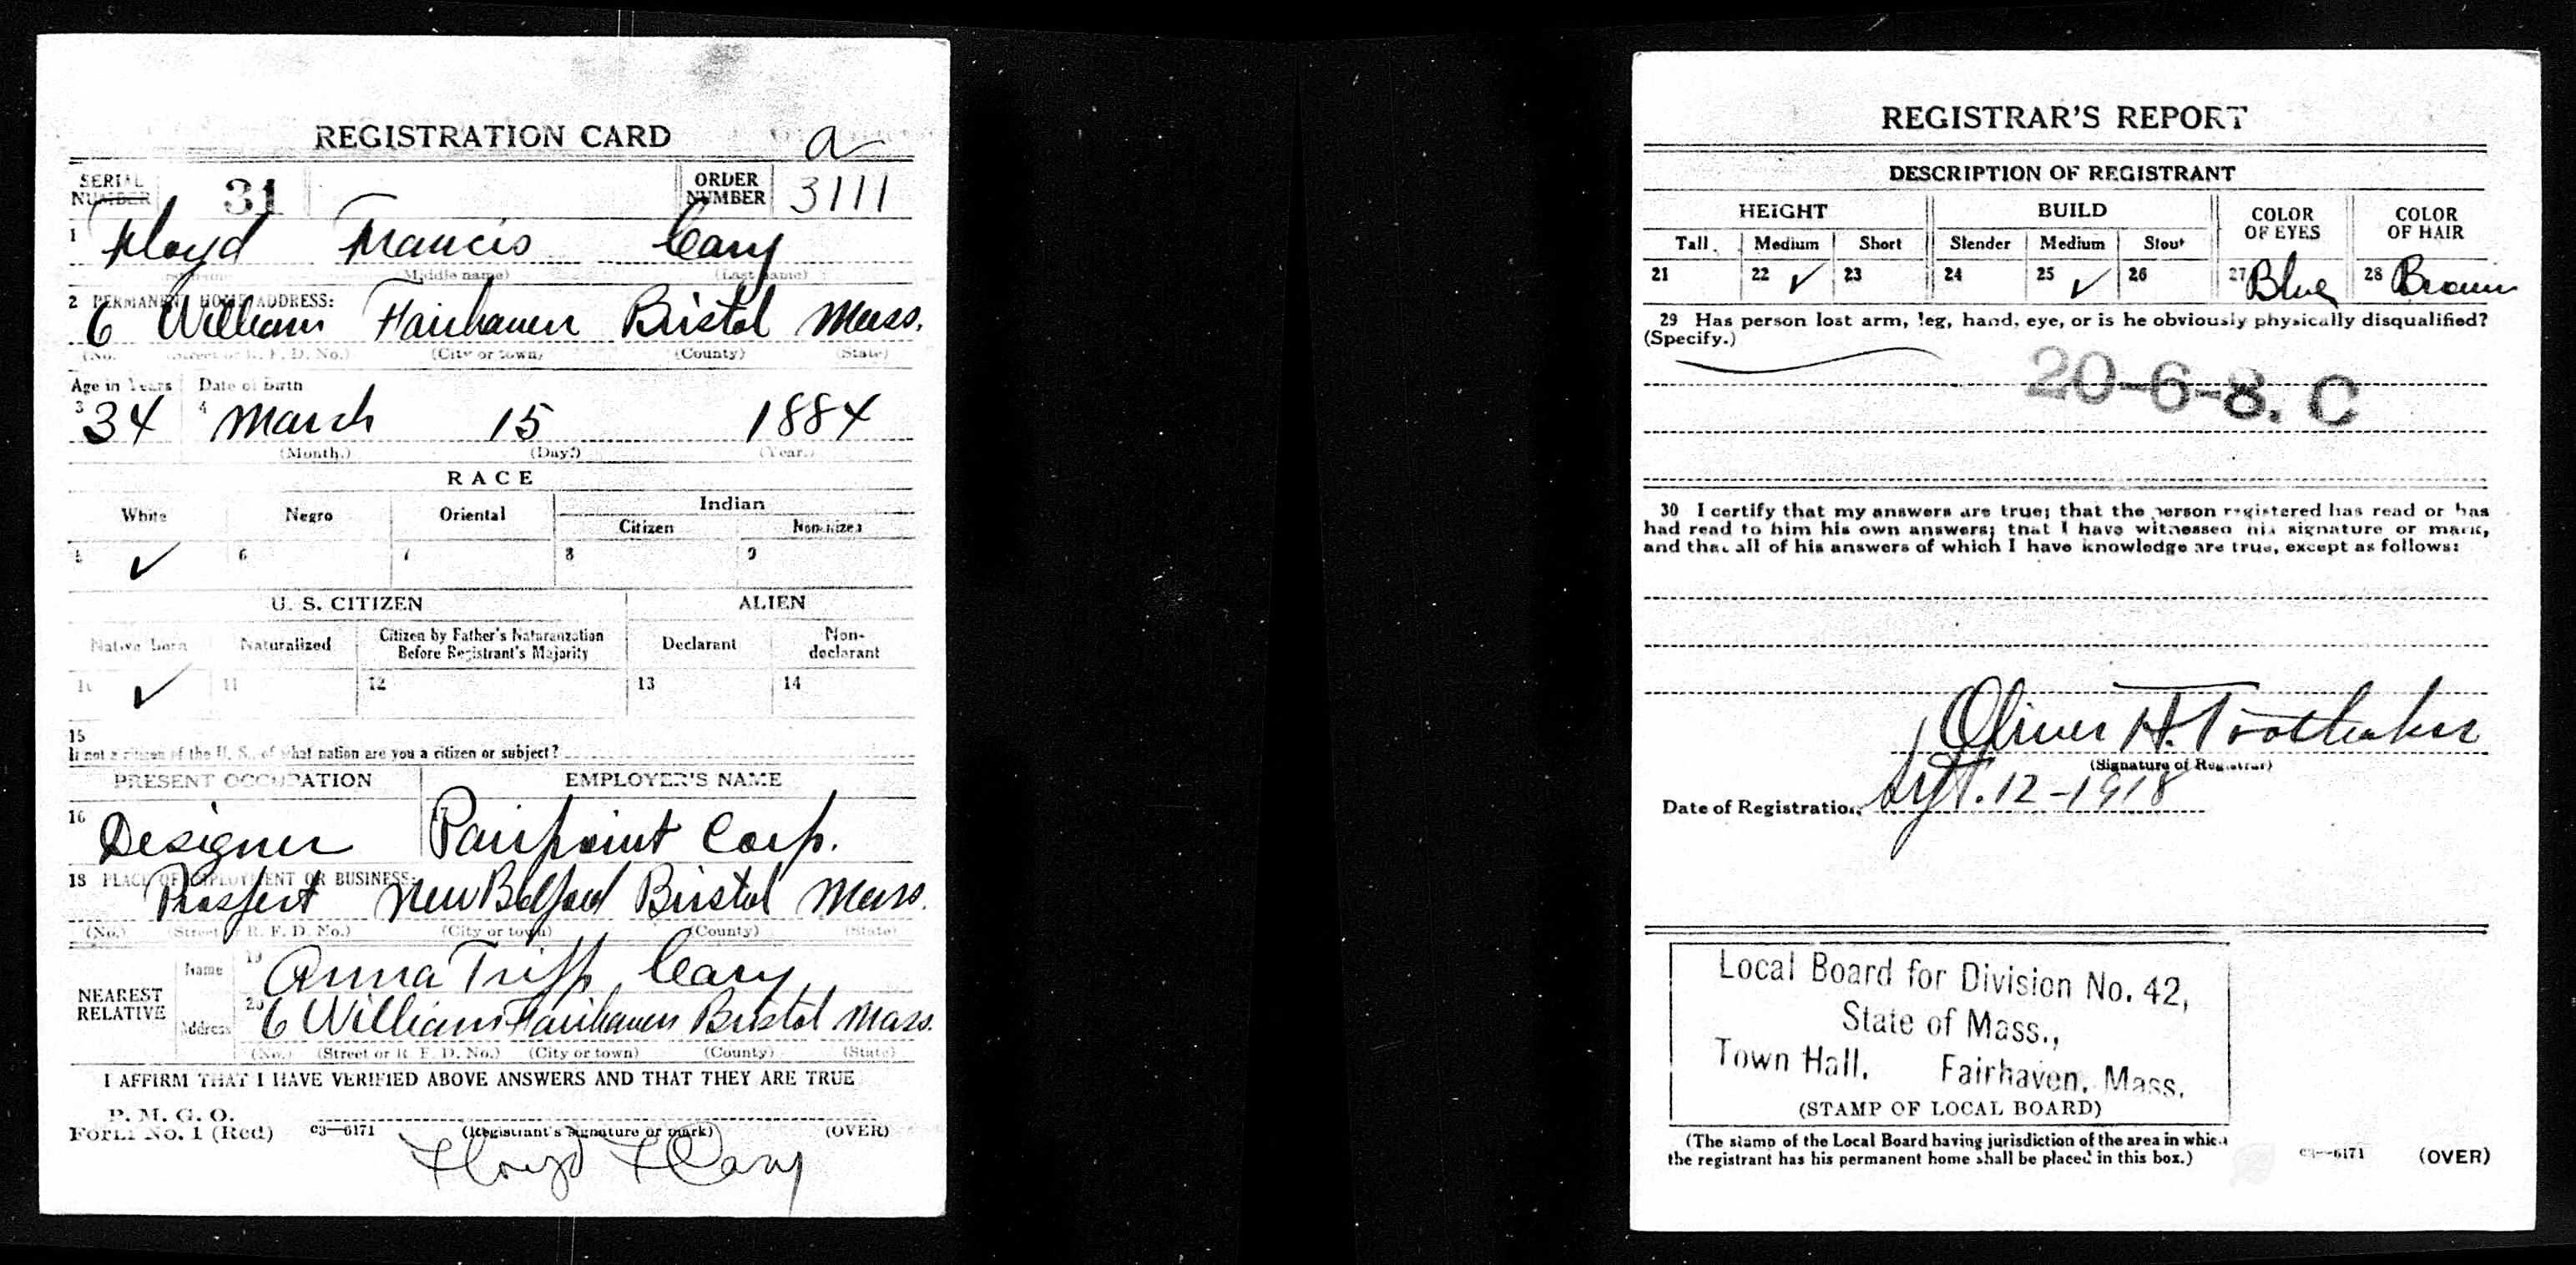 REGISTRATION CARD a
SERIAL NUMBER 31 ORDER NUMBER 3111
1 Floyd Francis Cary
(Middle name) (Last name)
2 PERMANENT HOME ADDRESS:
6 William Fairhaven Bristol Mass.
(No. (Street or R. F. D. No.) (City or town) (County) (State)
Age in Years Date of Birth
3 34 4 March 15 1884
(Month.) (Day.) (Year.)
RACE
White Negro Oriental Indian
Citizen Noncitizen
5 ✓ 6 7 8 9
U. S. CITIZEN ALIEN
Native born Naturalized Citizen by Father's Naturalization Before Registrant's Majority Declarant Non-declarant
10 ✓ 11 12 13 14
15
If not a citizen of the U. S., of what nation are you a citizen or subject?
PRESENT OCCUPATION EMPLOYER'S NAME
16 Designer 17 Pairpoint Corp.
18 PLACE OF EMPLOYMENT OR BUSINESS:
Prospect New Bedford Bristol Mass.
(No.) (Street or R. F. D. No.) (City or town) (County) (State)
NEAREST RELATIVE
Name 19 Anna Tripp Cary
Address 20 6 William Fairhaven Bristol Mass.
(No.) (Street or R. F. D. No.) (City or town) (County) (State)
I AFFIRM THAT I HAVE VERIFIED ABOVE ANSWERS AND THAT THEY ARE TRUE
P. M. G. O.
Form No. 1 (Red) c3—6171 (Registrant's signature or mark) (OVER)
Floyd F Cary
REGISTRAR'S REPORT
DESCRIPTION OF REGISTRANT
HEIGHT BUILD COLOR OF EYES COLOR OF HAIR
Tall Medium Short Slender Medium Stout
21 22 ✓ 23 24 25 ✓ 26 27 Blue 28 Brown
29 Has person lost arm, leg, hand, eye, or is he obviously physically disqualified?
(Specify.)
20-6-8. C
30 I certify that my answers are true; that the person registered has read or has
had read to him his own answers; that I have witnessed his signature or mark,
and that all of his answers of which I have knowledge are true, except as follows:
Oliver H. Toothaker
(Signature of Registrar)
Date of Registration Sept. 12 - 1918
Local Board for Division No. 42,
State of Mass.,
Town Hall. Fairhaven, Mass.
(STAMP OF LOCAL BOARD)
(The stamp of the Local Board having jurisdiction of the area in which
the registrant has his permanent home shall be placed in this box.)
c3—6171 (OVER)